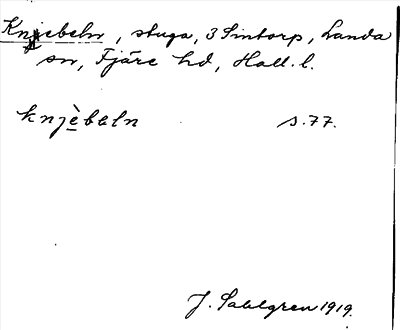 Knjebeln, stuga, 3 Sintorp, Landa
sn, Fjäre hd, Hall. l.
knjè̱bəln s. 77.
J. Sahlgren 1919.